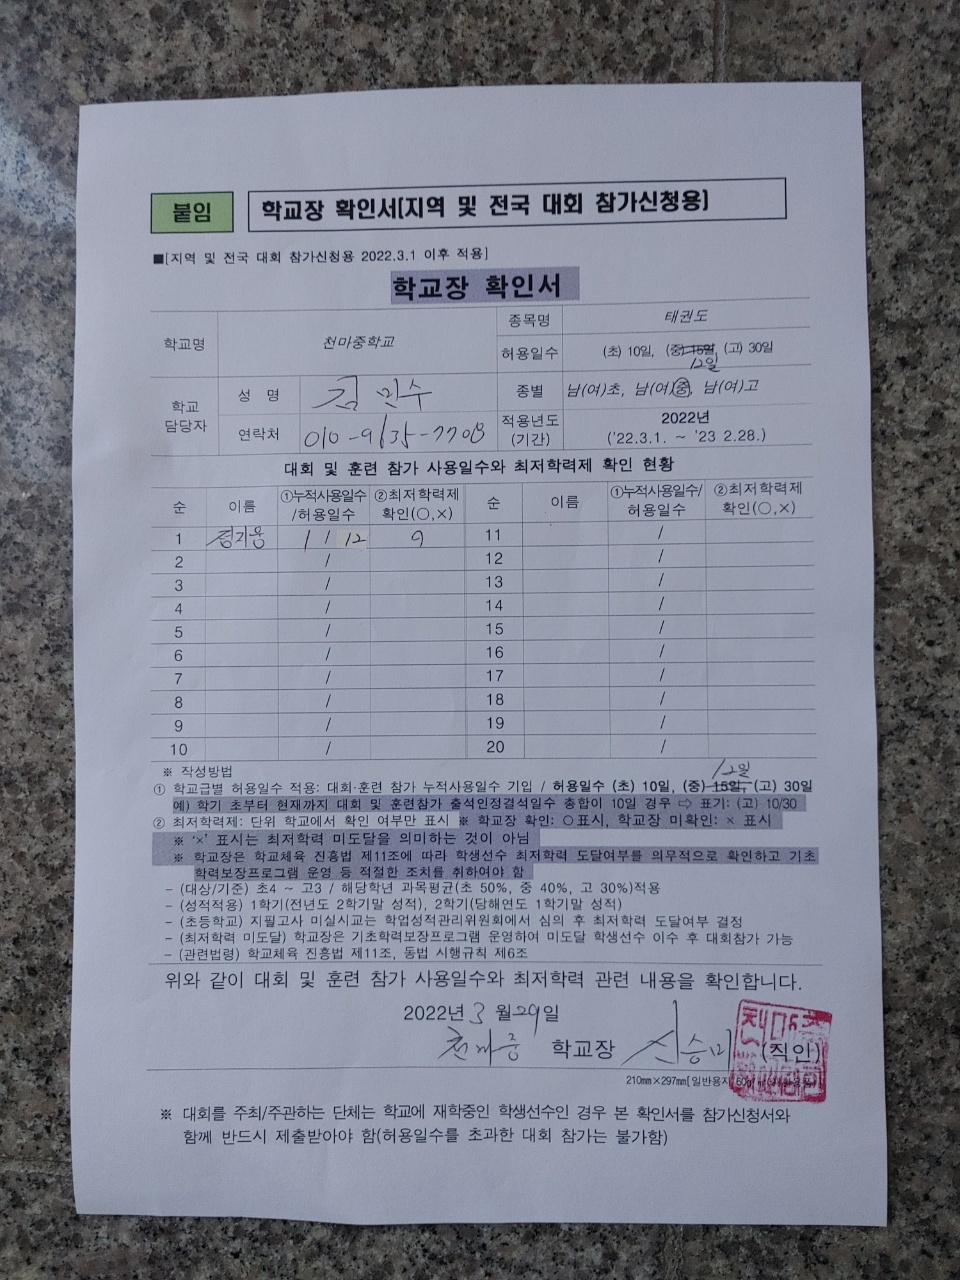 붙임 학교장 확인서[지역 및 전국 대회 참가신청용]
■[지역 및 전국 대회 참가신청용 2022.3.1 이후 적용]
학교장 확인서
학교명 천마중학교 종목명 태권도
허용일수 (초) 10일, (중) 15일, (고) 30일
12일
학교 담당자 성 명 김민수 종별 남(여)초, 남(여)중, 남(여)고
연락처 010-9135-7708 적용년도 (기간) 2022년
('22.3.1. ~ '23 2.28.)
대회 및 훈련 참가 사용일수와 최저학력제 확인 현황
순 이름 ①누적사용일수/허용일수 ②최저학력제 확인(○,×) 순 이름 ①누적사용일수/허용일수 ②최저학력제 확인(○,×)
1 1 / 12 11 /
2 / 12 /
3 / 13 /
4 / 14 /
5 / 15 /
6 / 16 /
7 / 17 /
8 / 18 /
9 / 19 /
10 / 20 /
※ 작성방법
12일
① 학교급별 허용일수 적용: 대회·훈련 참가 누적사용일수 기입 / 허용일수 (초) 10일, (중) 15일, (고) 30일
예) 학기 초부터 현재까지 대회 및 훈련참가 출석인정결석일수 총합이 10일 경우 ⇨ 표기: (고) 10/30
② 최저학력제: 단위 학교에서 확인 여부만 표시 ※ 학교장 확인: ○표시, 학교장 미확인: × 표시
※ '×' 표시는 최저학력 미도달을 의미하는 것이 아님
※ 학교장은 학교체육 진흥법 제11조에 따라 학생선수 최저학력 도달여부를 의무적으로 확인하고 기초
학력보장프로그램 운영 등 적절한 조치를 취하여야 함
- (대상/기준) 초4 ~ 고3 / 해당학년 과목평균(초 50%, 중 40%, 고 30%)적용
- (성적적용) 1학기(전년도 2학기말 성적), 2학기(당해연도 1학기말 성적)
- (초등학교) 지필고사 미실시교는 학업성적관리위원회에서 심의 후 최저학력 도달여부 결정
- (최저학력 미도달) 학교장은 기초학력보장프로그램 운영하여 미도달 학생선수 이수 후 대회참가 가능
- (관련법령) 학교체육 진흥법 제11조, 동법 시행규칙 제6조
위와 같이 대회 및 훈련 참가 사용일수와 최저학력 관련 내용을 확인합니다.
2022년 3 월 29일
천마중 학교장 (직인)
210㎜×297㎜[일반용지
※ 대회를 주최/주관하는 단체는 학교에 재학중인 학생선수인 경우 본 확인서를 참가신청서와
함께 반드시 제출받아야 함(허용일수를 초과한 대회 참가는 불가함)